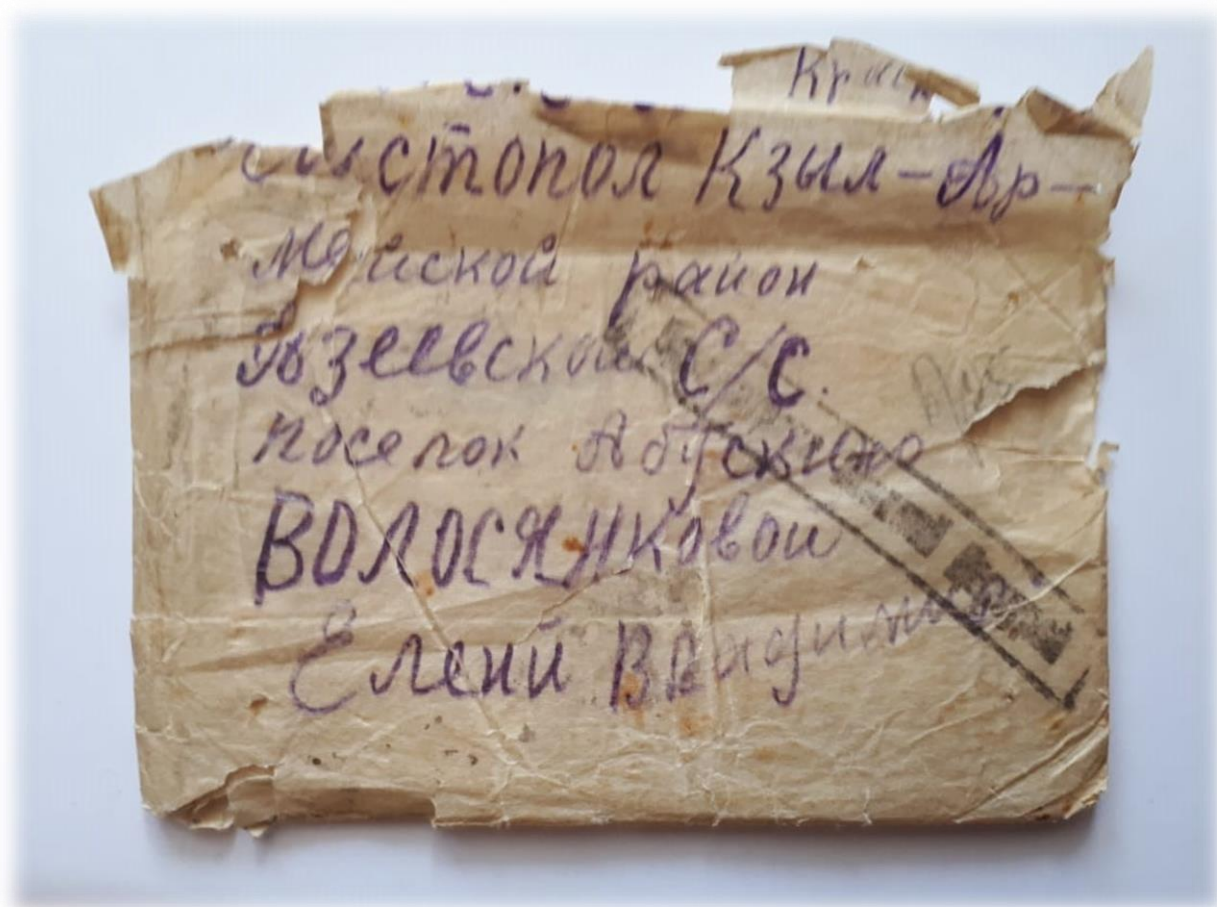 Крас
Чистопол Кзыл-Ар-
мейской район
Язеевской С/С.
поселок Абускино
ВОЛОСЯНКОВОЙ
Елени